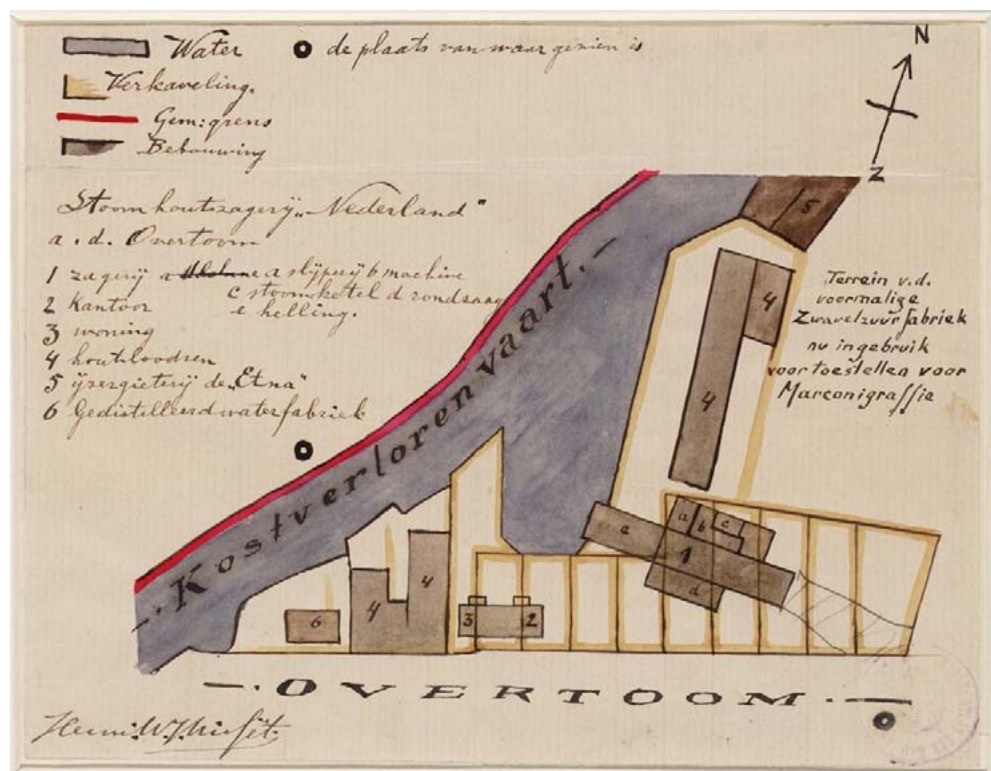 Water
de plaats van waar gezien is
Verkaveling.
Gem: grens
Bebouwing
N
Z
Stoomhoutzagerij „Nederland"
a. d. Overtoom
1 zagerij a slijperij b machine
c stoomketel d rondzaag
e helling.
2 Kantoor
3 woning
4 houtloodsen
5 ijzergieterij de „Etna"
6 Gedistilleerdwaterfabriek
5
4
Terrein v.d.
voormalige
Zwavelzuur fabriek
nu in gebruik
voor toestellen voor
Marconigraffie
4
Kostverlorenvaart.
e
a
b
c
1
d
6
4
4
3
2
OVERTOOM